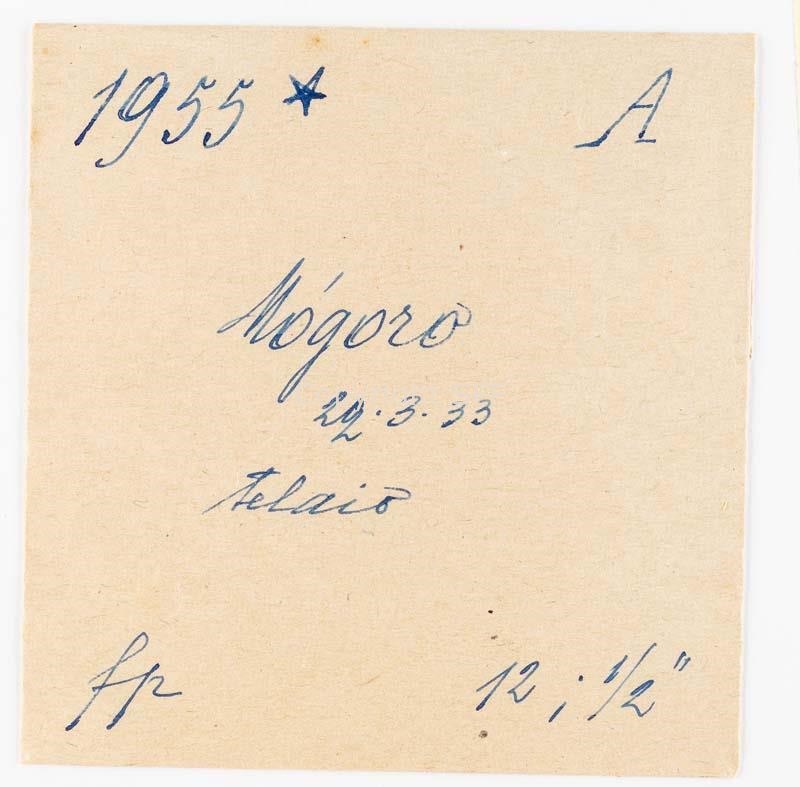 1955 ★ A
Mógoro
29.3.33
telaio
fp
12 ; 1/2"